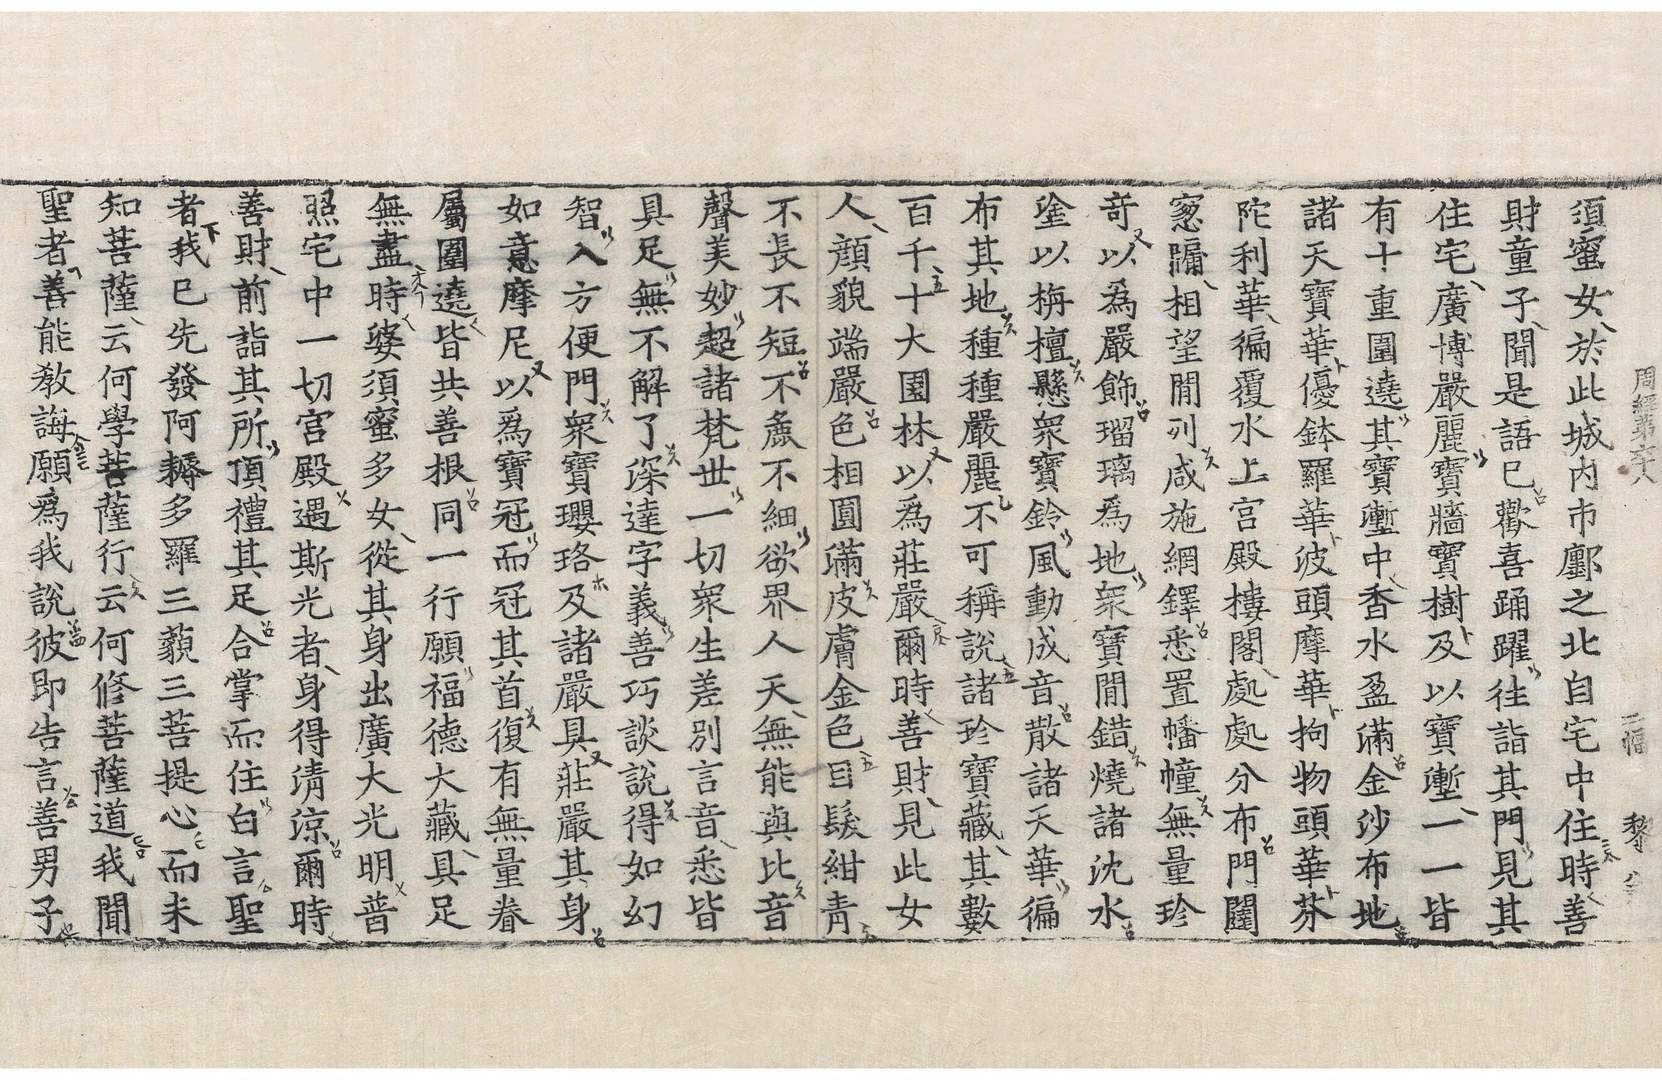 周經第六十八 三幅 黎
須蜜女於此城內市鄽之北自宅中住時善
財童子聞是語已歡喜踊躍往詣其門見其
住宅廣博嚴麗寶牆寶樹及以寶壍一一皆
有十重圍遶其寶壍中香水盈滿金沙布地
諸天寶華優鉢羅華波頭摩華拘物頭華芬
陀利華徧覆水上宮殿樓閣處處分布門闥
窓牖相望閒列咸施網鐸悉置幡幢無量珍
奇以爲嚴飾瑠璃爲地衆寶閒錯燒諸沈水
塗以栴檀懸衆寶鈴風動成音散諸天華徧
布其地種種嚴麗不可稱說諸珍寶藏其數
百千十大園林以爲莊嚴爾時善財見此女
人顏貌端嚴色相圓滿皮膚金色目髮紺青
不長不短不麁不細欲界人天無能與比音
聲美妙超諸梵世一切衆生差別言音悉皆
具足無不解了深達字義善巧談說得如幻
智入方便門衆寶瓔珞及諸嚴具莊嚴其身
如意摩尼以爲寶冠而冠其首復有無量眷
屬圍遶皆共善根同一行願福德大藏具足
無盡時婆須蜜多女從其身出廣大光明普
照宅中一切宮殿遇斯光者身得清涼爾時
善財前詣其所頂禮其足合掌而住白言聖
者我已先發阿耨多羅三藐三菩提心而未
知菩薩云何學菩薩行云何修菩薩道我聞
聖者善能教誨願爲我說彼即告言善男子